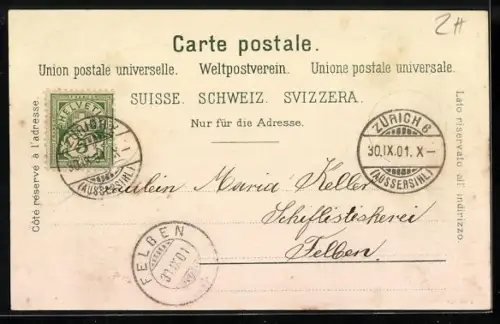 2H
Carte postale.
Union postale universelle. Weltpostverein. Unione postale universale.
SUISSE. SCHWEIZ. SVIZZERA.
Nur für die Adresse.
Côté réservé à l'adresse.
Lato riservato all' indirizzo.
HELVETIA
ZÜRICH 6
30.IX.01. X–
(AUSSERSIHL)
(AUSSERSIHL)
Fräulein Maria Keller
Schiflistickerei
Felben
FELBEN
30.IX.01